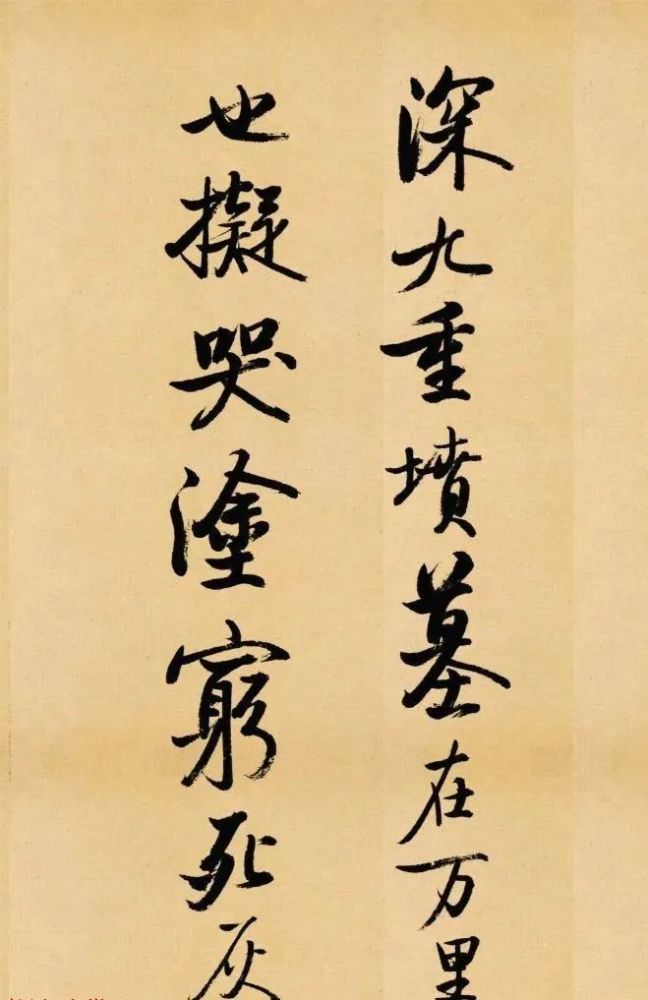 深九重墳墓在万里
也擬哭塗窮死灰